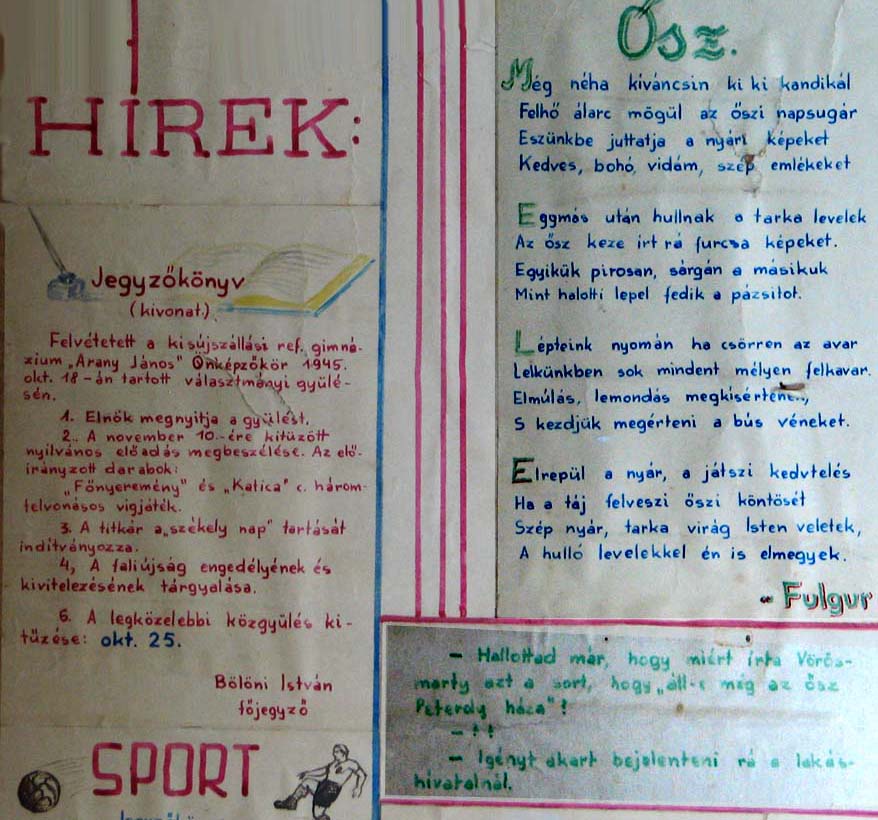 HÍREK:
Jegyzőkönyv
(kivonat)
Felvétetett a kisújszállási ref. gimná-
zium „Arany János" Önképzőkör 1945.
okt. 18-án tartott választmányi gyülé-
sén.
1. Elnök megnyitja a gyülést.
2. A november 10.-ére kitüzött
nyilvános előadás megbeszélése. Az elő-
irányzott darabok:
„Főnyeremény" és „Katica" c. három-
felvonásos vigjáték.
3. A titkár a „székely nap" tartását
indítványozza.
4, A faliújság engedélyének és
kivitelezésének tárgyalása.
6. A legközelebbi közgyülés ki-
tüzése: okt. 25.
Bölöni István
főjegyző
SPORT
Ősz.
Még néha kíváncsin ki ki kandikál
Felhő álarc mögül az őszi napsugár
Eszünkbe juttatja a nyári képeket
Kedves, bohó, vidám, szép emlékeket
Eggmás után hullnak a tarka levelek
Az ősz keze írt rá furcsa képeket.
Egyikük pirosan, sárgán a másikuk
Mint halotti lepel fedik a pázsitot.
Lépteink nyomán ha csörren az avar
Lelkünkben sok mindent mélyen felkavar.
Elmúlás, lemondás
S kezdjük megérteni a bús véneket.
Elrepül a nyár, a játszi kedvtelés
Ha a táj felveszi őszi köntösét
Szép nyár, tarka virág Isten veletek,
A hulló levelekkel én is elmegyek.
- Fulgur
- Hallottad már, hogy miért írta Vörös-
marty azt a sort, hogy „áll-e még az ősz
Peterdy háza"?
- ??
- Igényt akart bejelenteni rá a lakás-
hivatalnál.